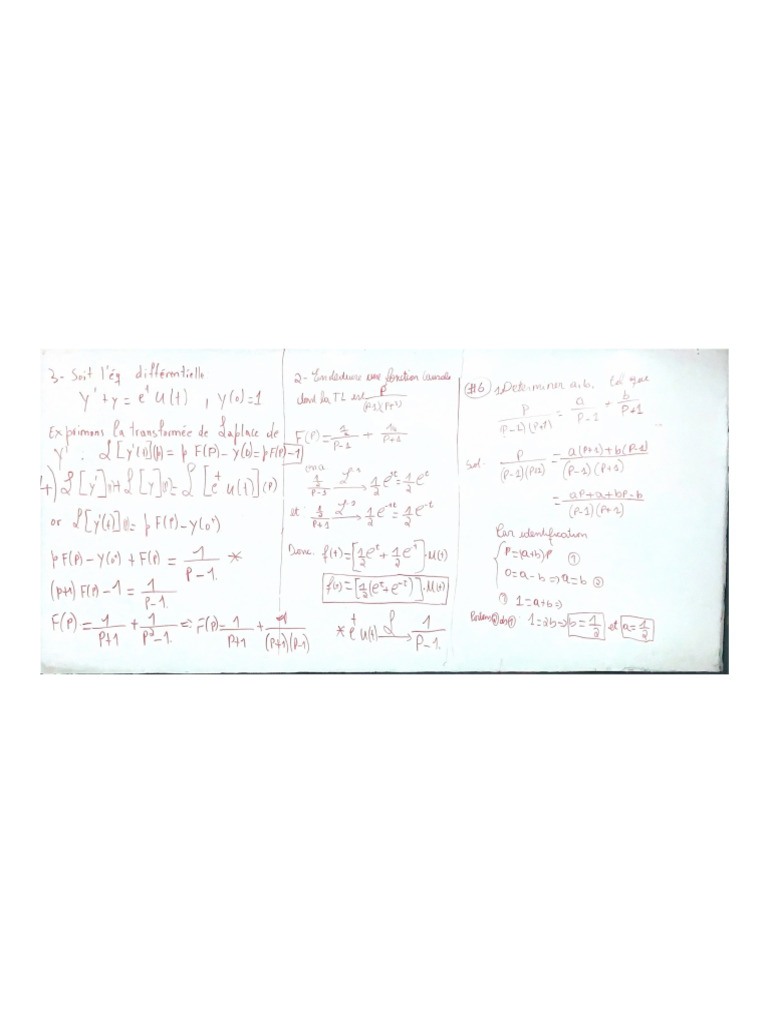 3- Soit l'éq différentielle
y' + y = e^t u(t) , y(0)=1
Exprimons la transformée de Laplace de
y' : ℒ[y'(t)](p) = p F(p) - y(0) = p F(p) - 1
4) ℒ[y'](p) + ℒ[y](p) = ℒ[e^t u(t)](p)
or ℒ[y'(t)](p) = p F(p) - y(0⁺)
p F(p) - y(0⁺) + F(p) = 1/(p-1) *
(p+1) F(p) - 1 = 1/(p-1)
F(p) = 1/(p+1) + 1/(p²-1) => F(p) = 1/(p+1) + 1/((p+1)(p-1))
2- En deduire une fonction causale
dont la TL est p/((p-1)(p+1))
F(p) = ½/(p-1) + ½/(p+1)
on a
½/(p-1) → ½ e^t = ½ e^t
et ½/(p+1) → ½ e^-t = ½ e^-t
Donc f(t) = [½ e^t + ½ e^-t] · u(t)
f(t) = [½ (e^t + e^-t)] · u(t)
* e^t u(t) ℒ→ 1/(p-1)
#6 1. Determiner a, b, tel que
p/((p-1)(p+1)) = a/(p-1) + b/(p+1)
Sol. p/((p-1)(p+1)) = (a(p+1)+b(p-1))/((p-1)(p+1))
= (ap+a+bp-b)/((p-1)(p+1))
Par identification
{ p = (a+b)p ①
0 = a-b => a=b ②
① 1 = a+b =>
② ds ① : 1 = 2b => b = 1/2 et a = 1/2